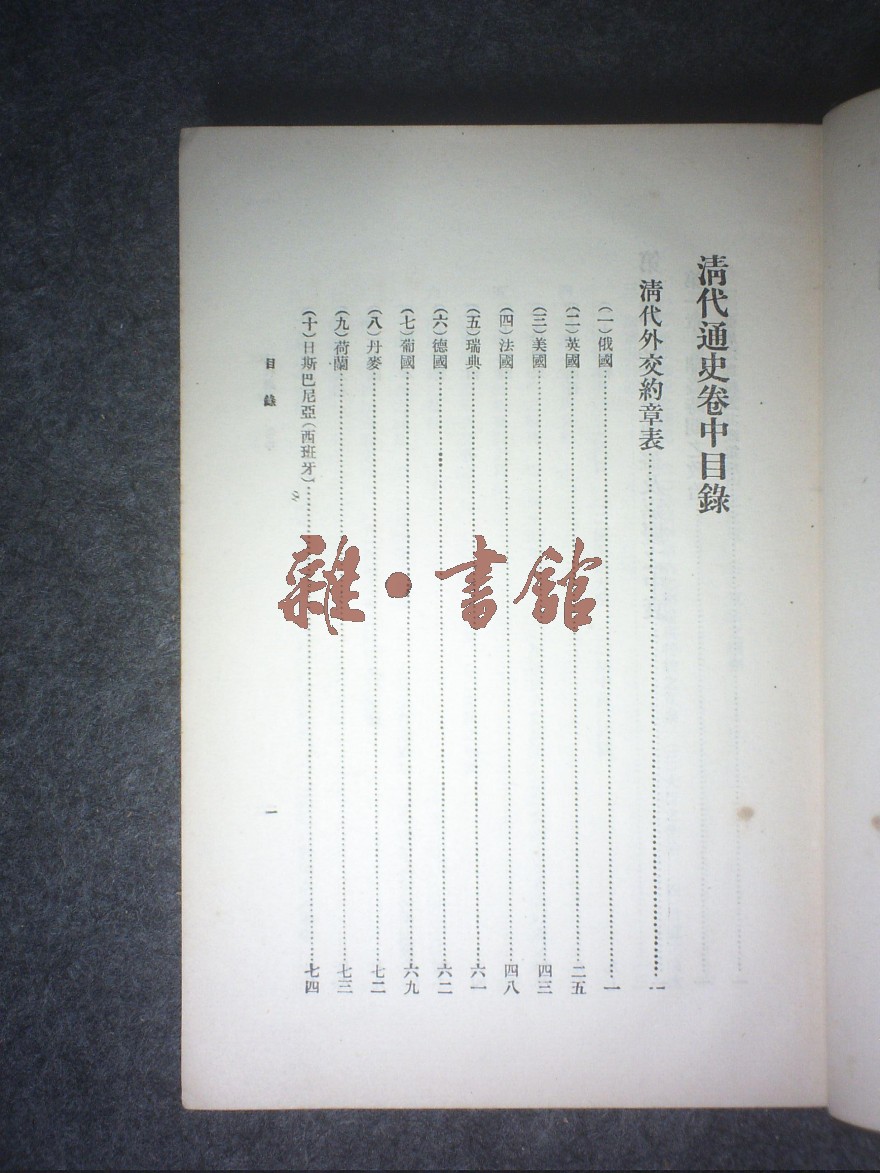 清代通史卷中目錄
清代外交約章表…………一
(一)俄國…………一
(二)英國…………二五
(三)美國…………四三
(四)法國…………四八
(五)瑞典…………六一
(六)德國…………六二
(七)葡國…………六九
(八)丹麥…………七二
(九)荷蘭…………七三
(十)日斯巴尼亞(西班牙)…………七四
目錄
一
雜·書館